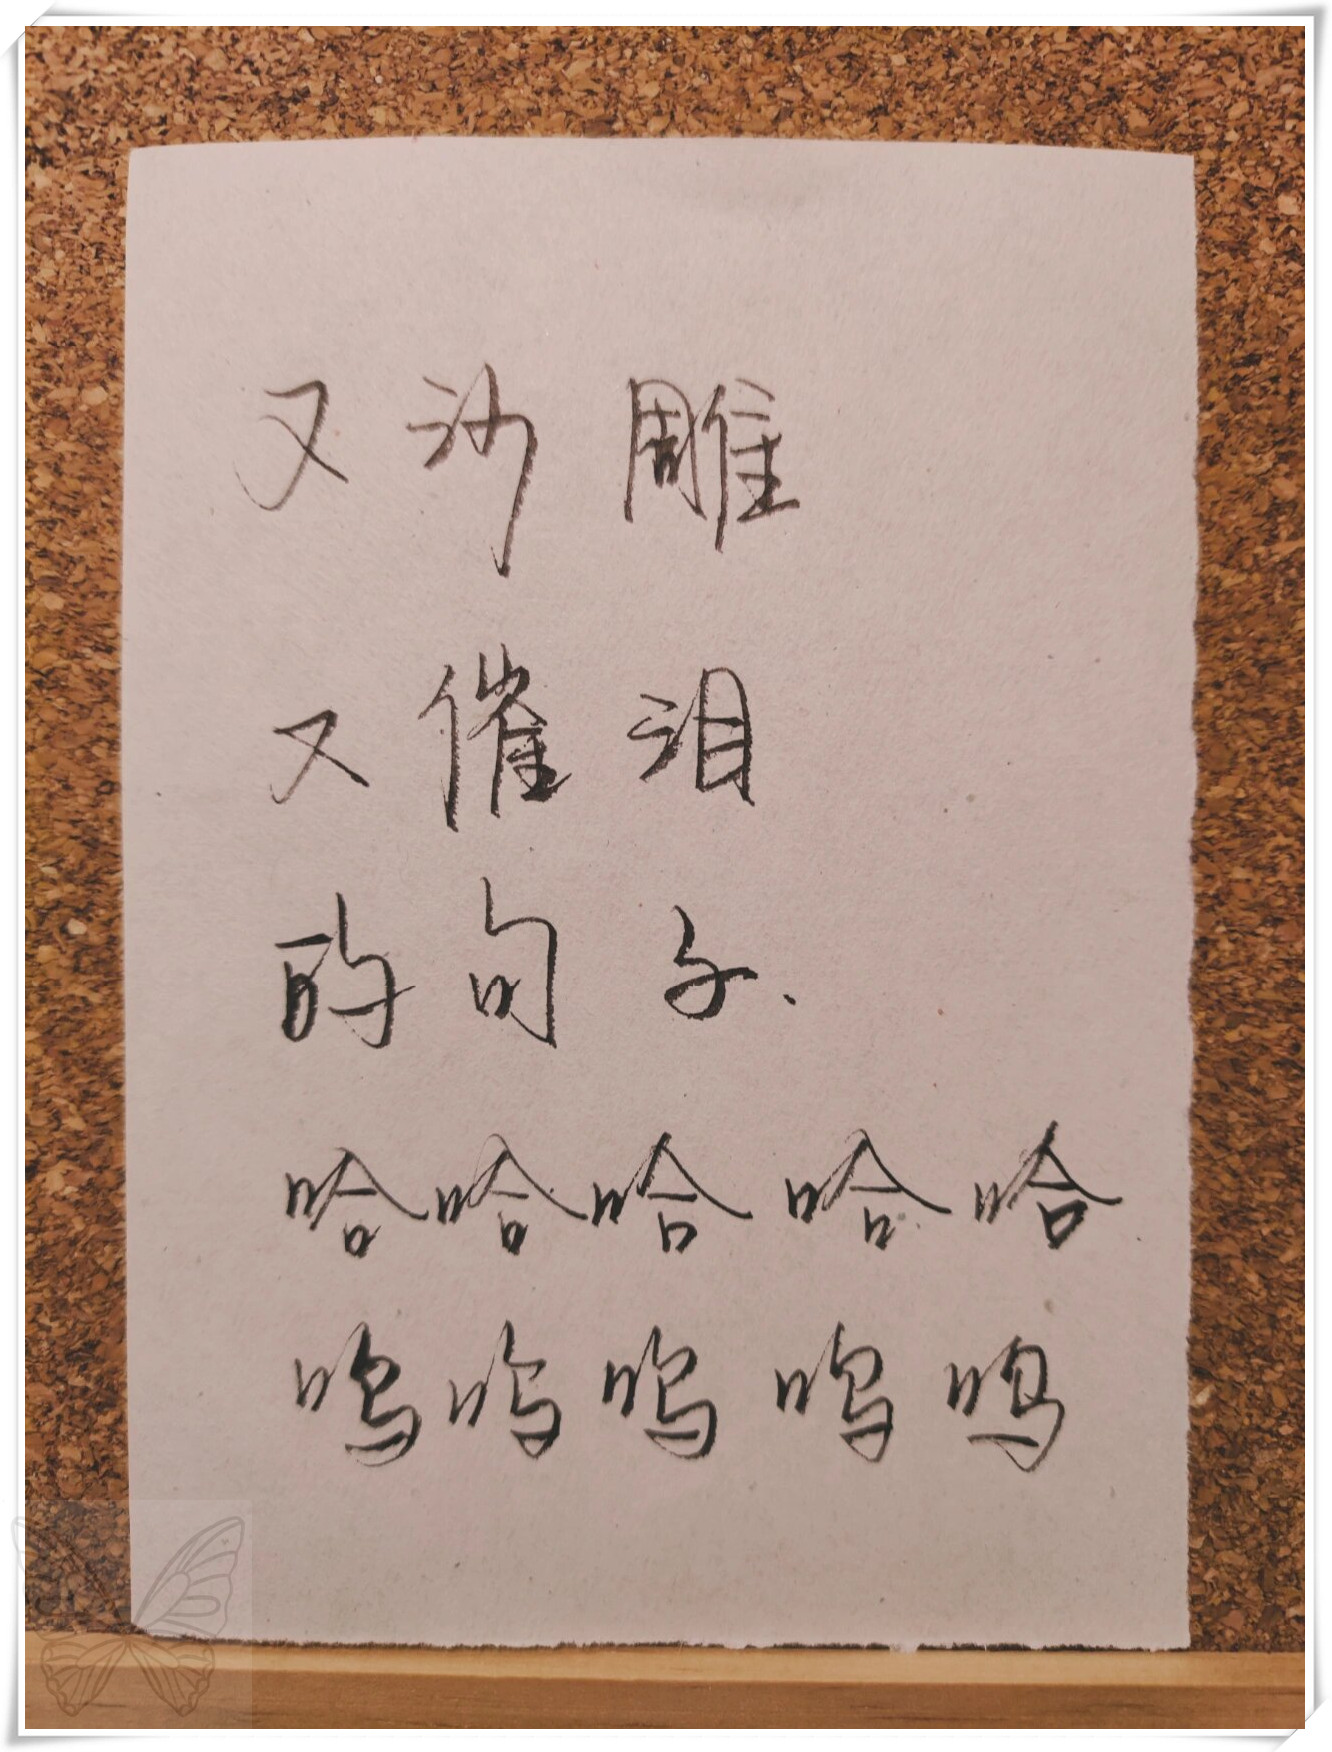 又沙雕
又催泪
的句子.
哈哈哈哈哈
呜呜呜呜呜